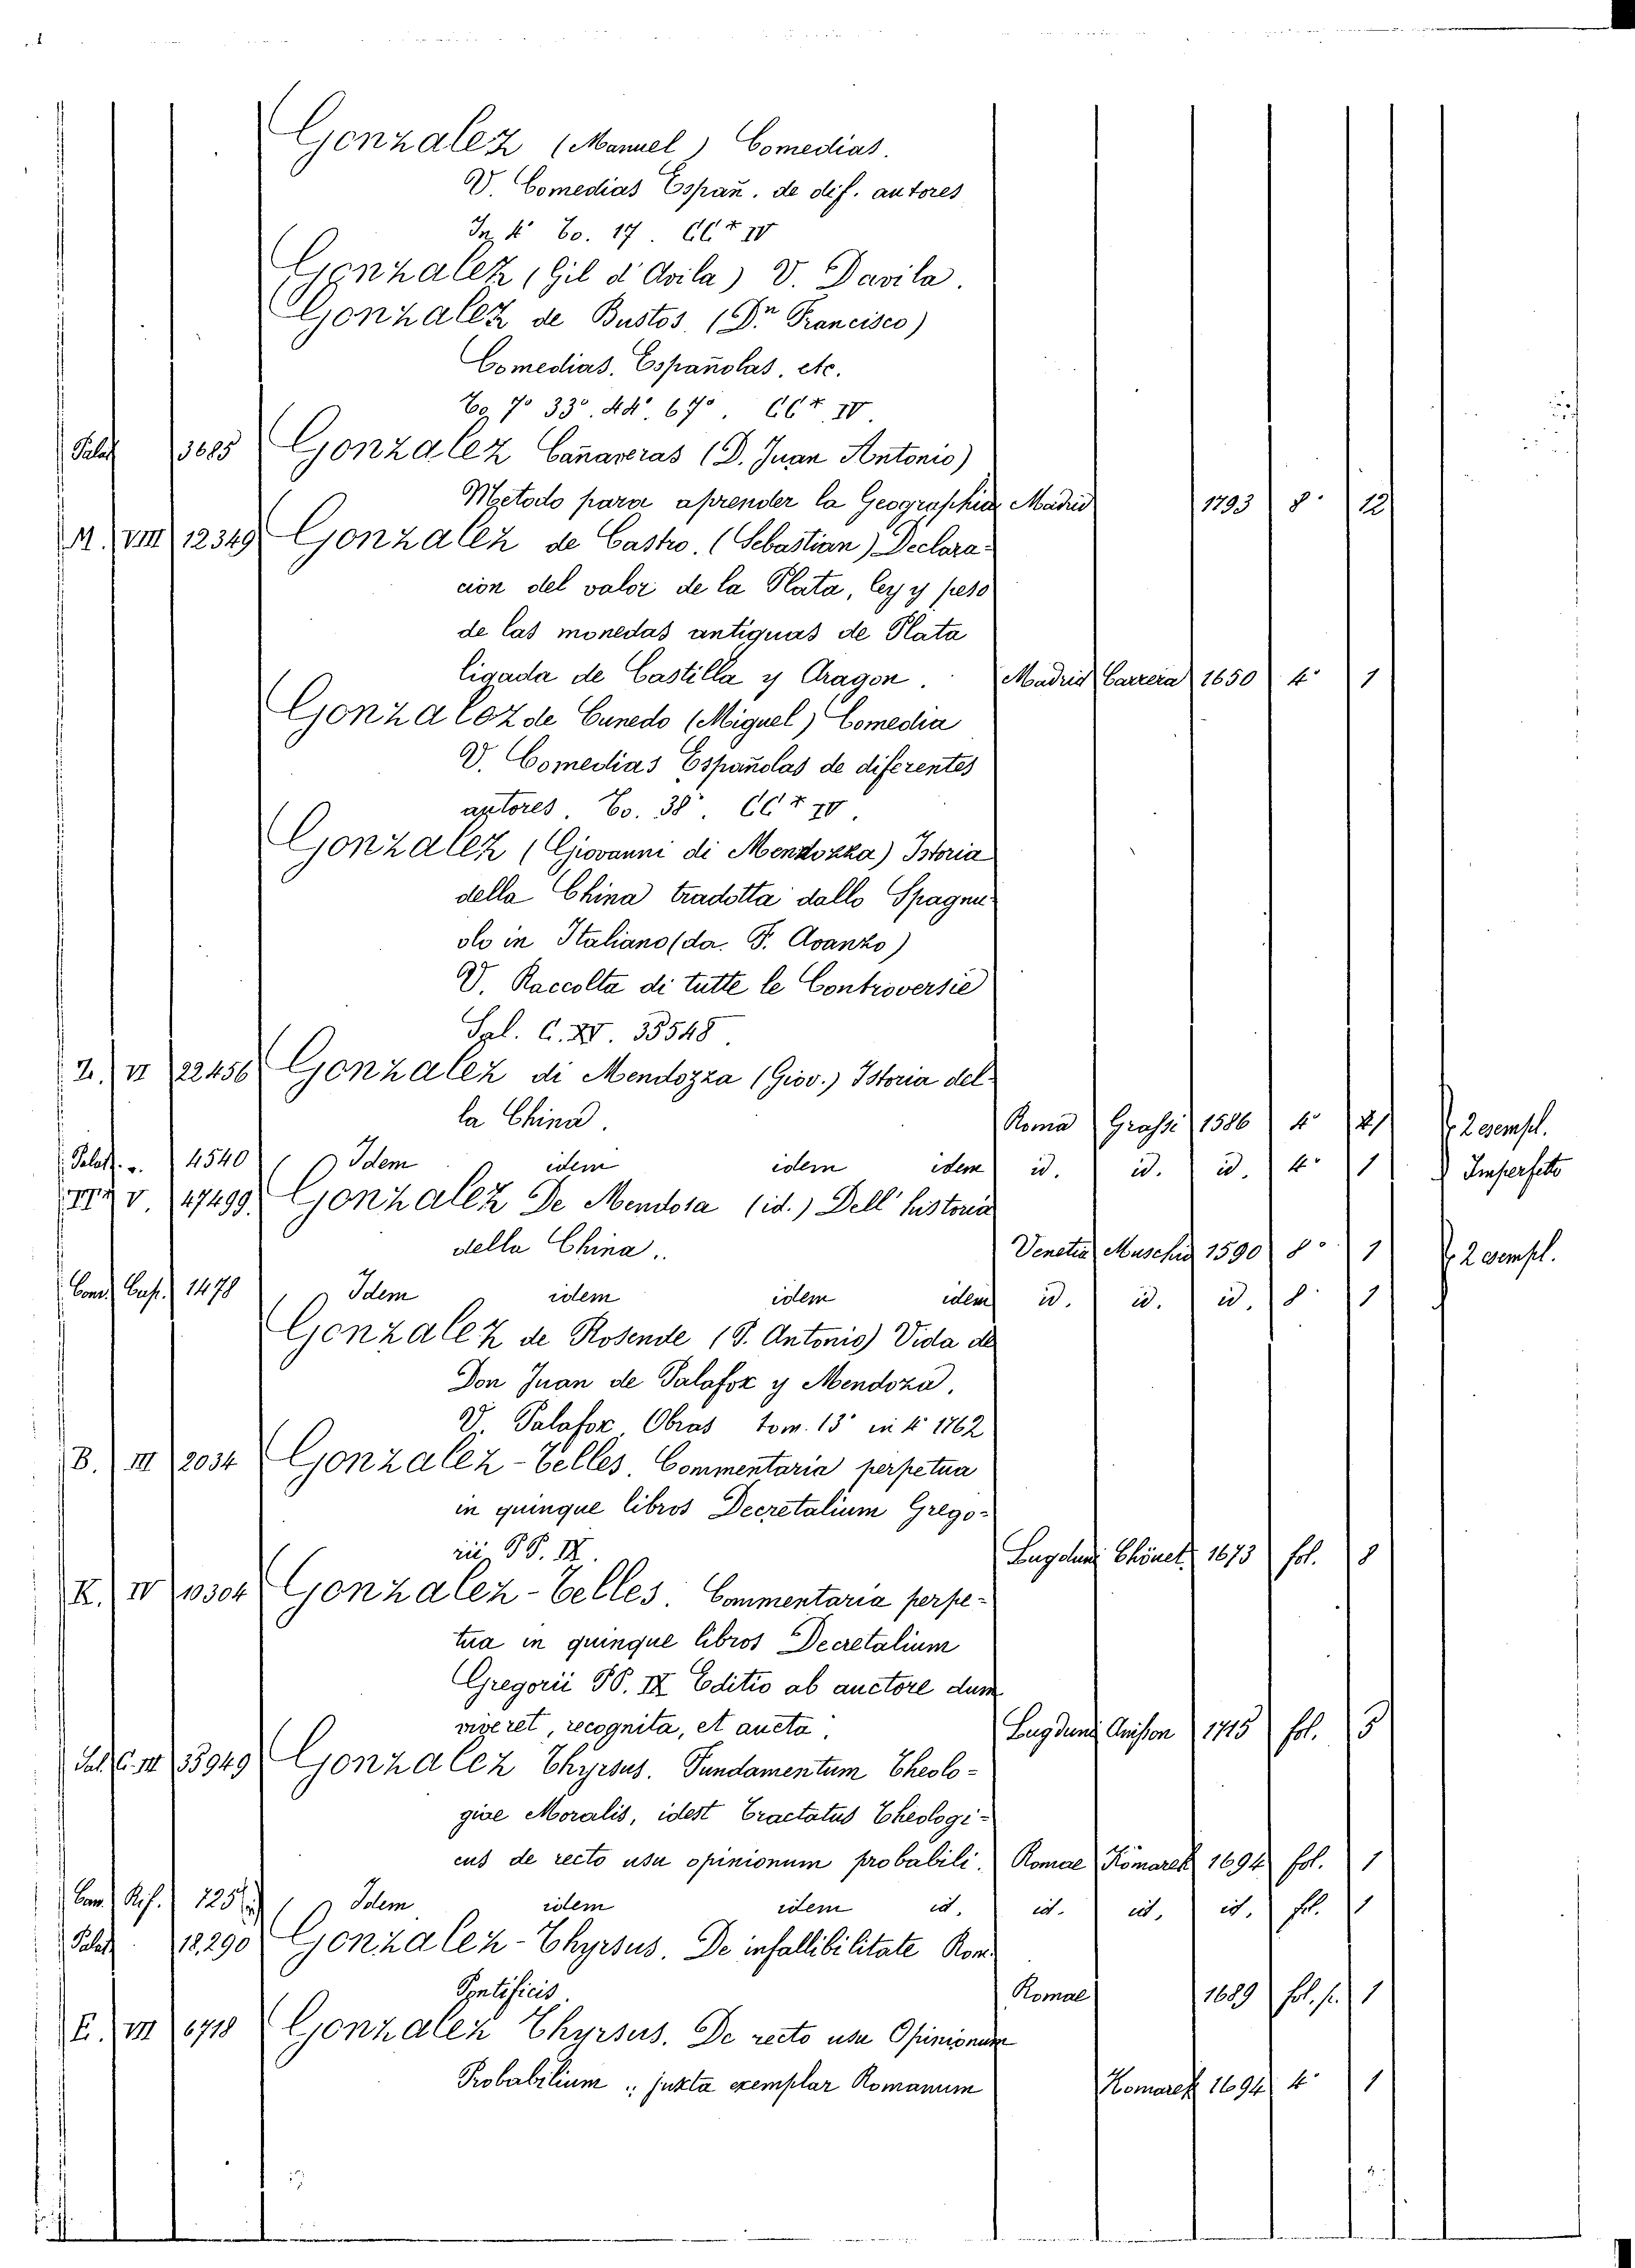 Gonzalez (Manuel) Comedias.
V. Comedias Españ. de dif. autores
In 4° To. 17. CC* IV
Gonzalez (Gil d'Avila) V. Davila.
Gonzalez de Bustos. (Dn Francisco)
Comedias. Españolas, etc.
To. 7° 33°. 44° 67°. CC* IV.
Palat 3685 Gonzalez Cañaveras (D. Juan Antonio)
Metodo para aprender la Geographia Madrid 1793 8° 12
M. VIII 12349 Gonzalez de Castro. (Sebastian) Declara-
cion del valor de la Plata, ley y peso
de las monedas antiguas de Plata
ligada de Castilla y Aragon. Madrid Carrera 1650 4° 1
Gonzalez de Cunedo (Miguel) Comedia
V. Comedias Españolas de diferentes
autores. To. 38°. CC* IV.
Gonzalez (Giovanni di Mendozza) Istoria
della China tradotta dallo Spagnu-
olo in Italiano (da F. Avanzo)
V. Raccolta di tutte le Controversie
Sal. C. XV. 35548.
Z. VI 22456 Gonzalez di Mendozza (Giov.) Istoria del-
la China. Roma Grassi 1586 4° 1 2 esempl.
Palat. 4540 Idem idem idem idem id. id. id. 4° 1 Imperfetto
V 47499. Gonzalez De Mendosa (id.) Dell' historia
della China.. Venetia Muschio 1590 8° 1 2 esempl.
Cam. Cap. 1478 Idem idem idem idem id. id. id. 8° 1
Gonzalez de Rosende (P. Antonio) Vida de
Don Juan de Palafox y Mendoza.
V. Palafox, Obras tom. 13° in 4° 1762
B. III 2034 Gonzalez-Telles. Commentaria perpetua
in quinque libros Decretalium Grego-
rii PP. IX. Lugduni Chönet 1673 fol. 8
K. IV 10304 Gonzalez-Telles. Commentaria perpe-
tua in quinque libros Decretalium
Gregorii PP. IX Editio ab auctore dum
viveret, recognita, et aucta. Lugduni Anisson 1715 fol. 5
Sal. C. III 35949 Gonzalez Thyrsus. Fundamentum Theolo-
giae Moralis, idest Tractatus Theologi-
cus de recto usu opinionum probabili. Romae Komarek 1694 fol. 1
Cam. Rif. 125 Idem idem idem id. id. id. id. fol. 1
Palat 18,290 Gonzalez-Thyrsus. De infallibilitate Rom.
Pontificis. Romae 1689 fol. p. 1
E. VII 6718 Gonzalez Thyrsus. De recto usu Opinionum
Probabilium : juxta exemplar Romanum Komarek 1694 4° 1